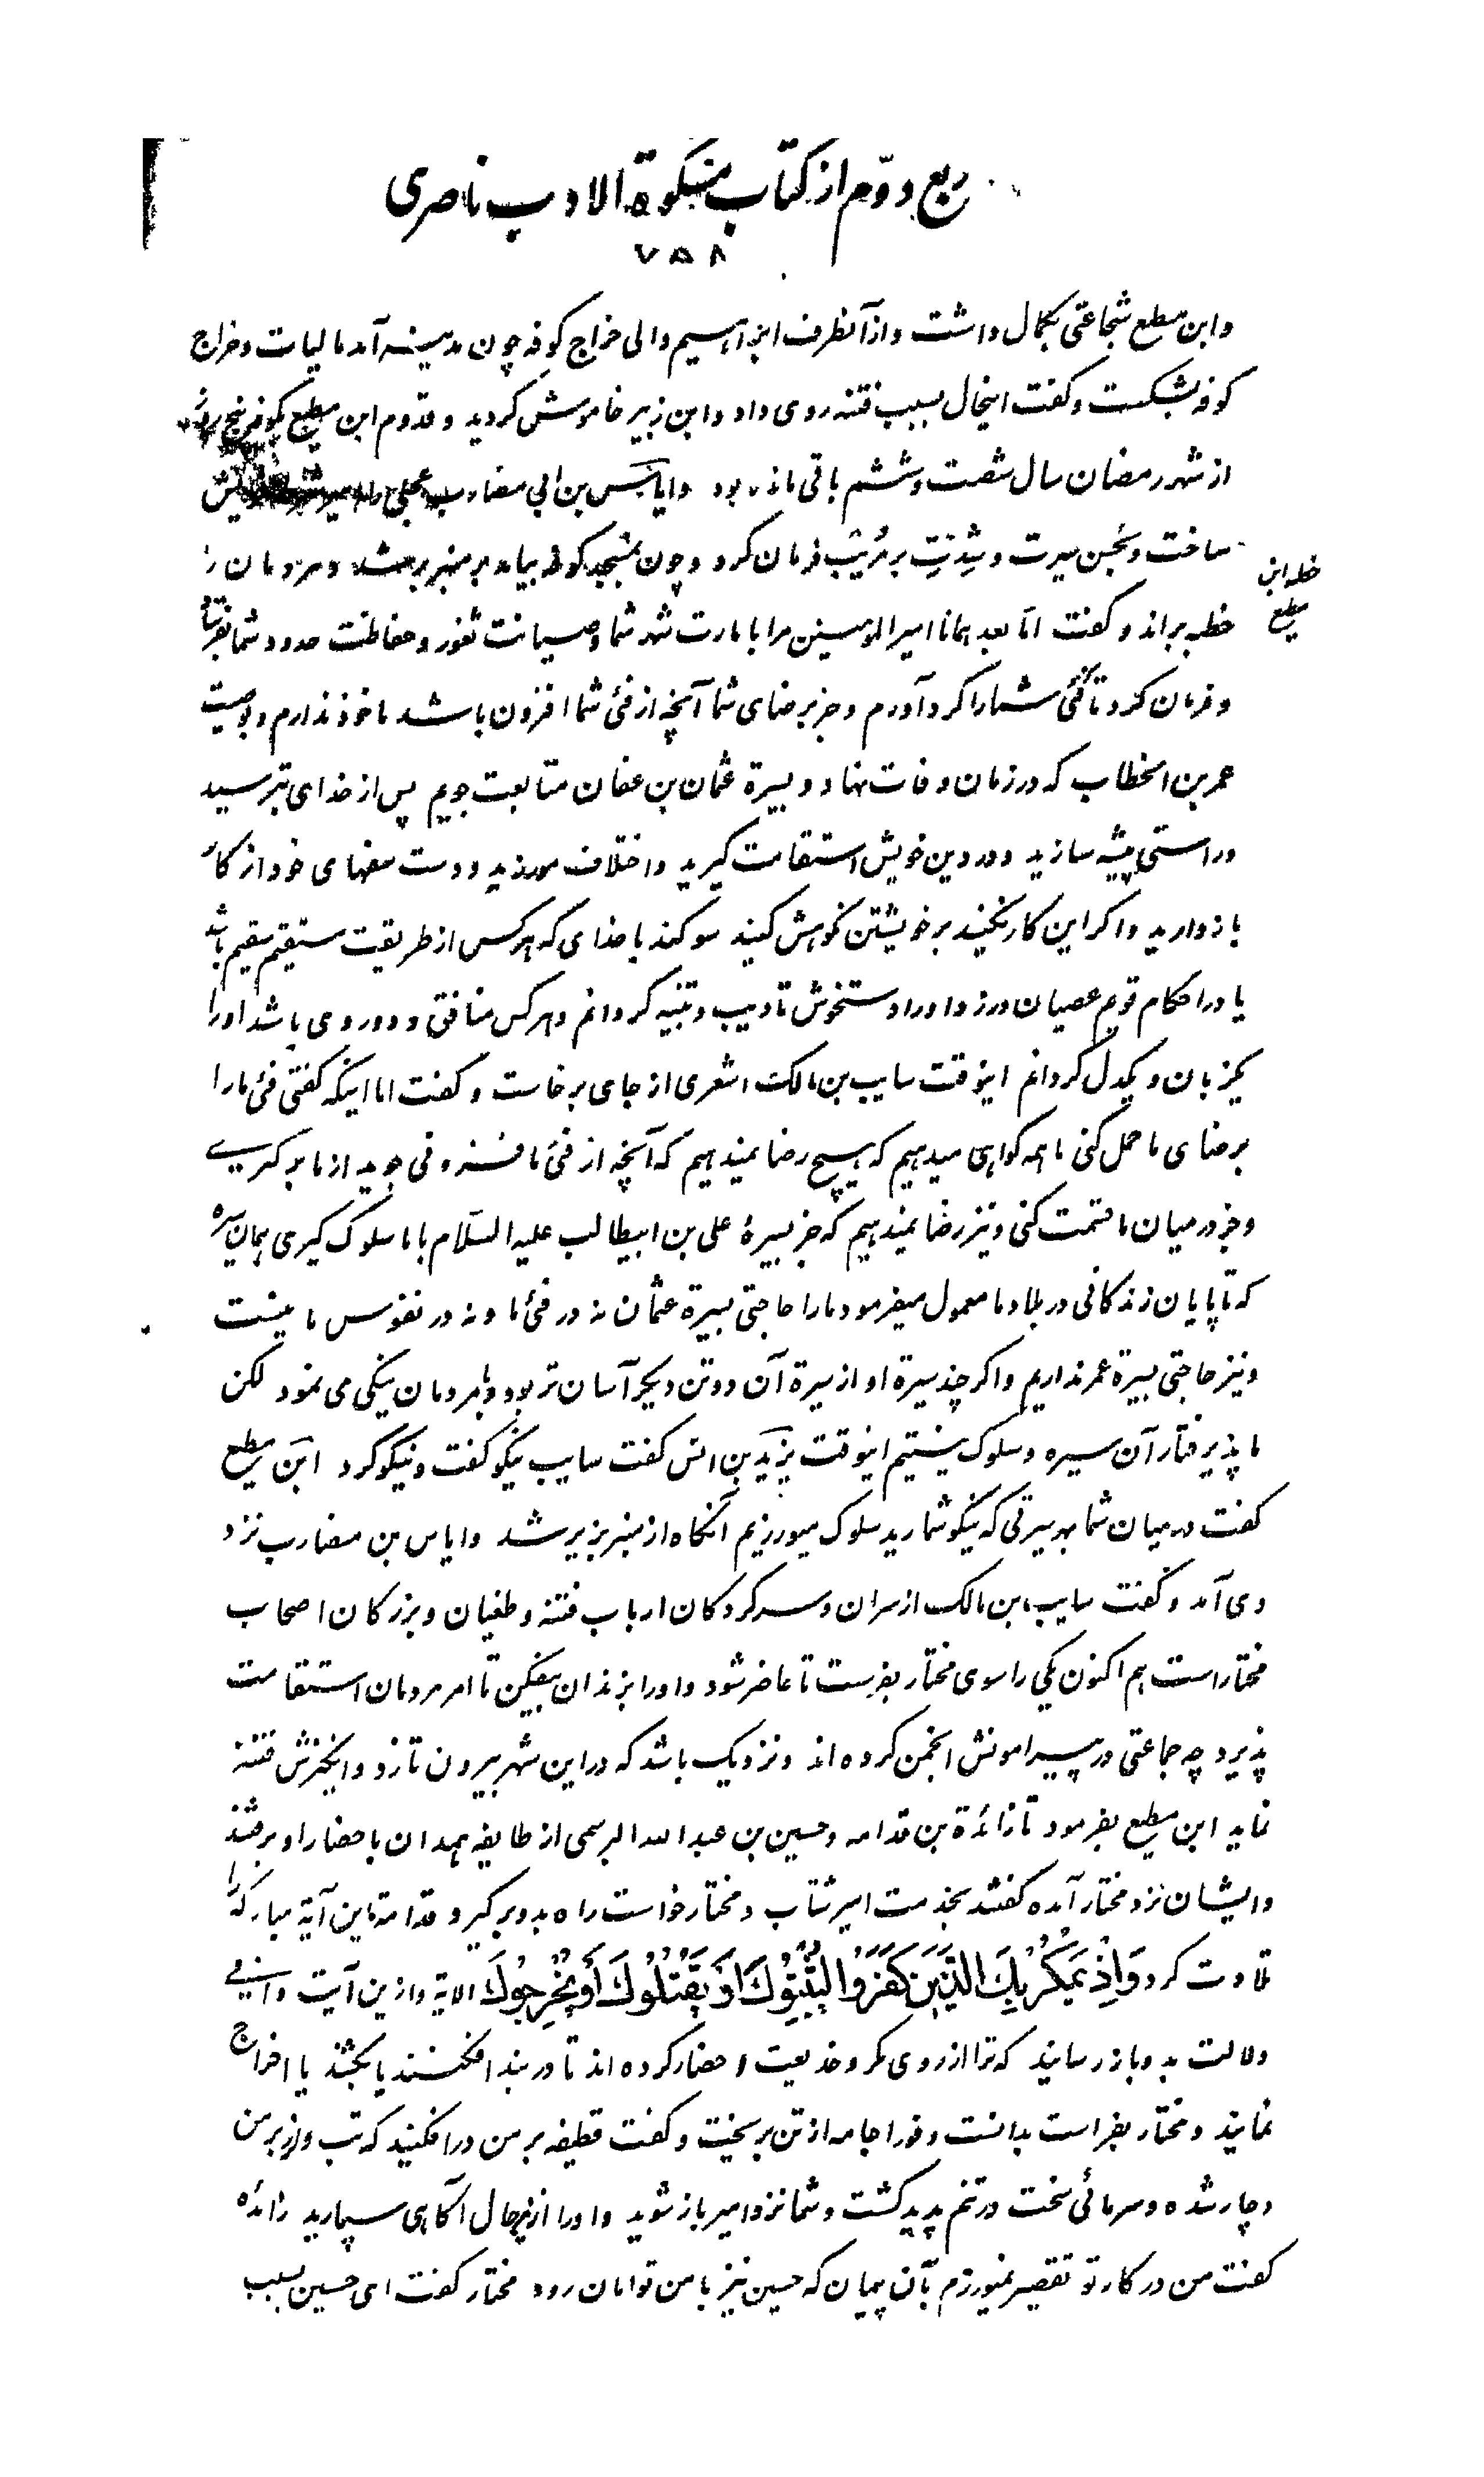 ربع دوّم از کتاب مشکوة الادب ناصری
۷۵۸
و ابن مطیع شجاعتی بکمال داشت و از آنطرف ابراهیم والی خراج کوفه چون بمدینه آمد مالیات و خراج
کوفه بشکست و گفت اینحال بسبب فتنه روی داد و ابن زبیر خاموش گردید و قدوم ابن مطیع بکوفه پنج روز
از شهر رمضان سال شصت و ششم باقی مانده بود و ایاس بن ابی مضارب عجلی را امیر
ساخت و بحسن سیرت و شدت بر مریب فرمان کرد و چون بمسجد کوفه بیامد بر منبر بر شد و مردمان را
خطبه ابن
مطیع
خطبه براند و گفت امّا بعد همانا امیرالمؤمنین مرا بامارت شهر شما و صیانت ثغور و حفاظت حدود شما بفرستاد
و فرمان کرد تا فئی شما را گرد آورم و جز برضای شما آنچه از فئی شما افزون باشد ماخوذ ندارم و بوصیت
عمر بن الخطاب که در زمان وفات نهاد و بسیرة عثمان بن عفان متابعت جویم پس از خدای بترسید
و راستی پیشه سازید و در دین خویش استقامت گیرید و اختلاف مورزید و دست سفهای خود از کار
باز دارید و اگر این کار نکنید بر خویشتن نکوهش کنید سوگند با خدای که هر کسی از طریقت مستقیم سقیم باشد
یا در احکام قویم عصیان ورزد او را دستخوش تادیب و تنبیه گردانم و هر کس منافق و دوروی باشد او را
یکزبان و یکدل گردانم اینوقت سایب بن مالک اشعری از جای برخاست و گفت اما اینکه گفتی فئی ما را
برضای ما حمل کنی ما همه گواهی میدهیم که هیچ رضا نمیدهیم که آنچه از فئی ما فزونی جوید از ما برگیری
و جز در میان ما قسمت کنی و نیز رضا نمیدهیم که جز بسیرهٔ علی بن ابیطالب علیه السّلام با ما سلوک گیری همان سیره
که تا پایان زندگانی در بلاد ما معمول میفرمود ما را حاجتی بسیرة عثمان نه در فئی ما و نه در نفوس ما نیست
و نیز حاجتی بسیرة عمر نداریم و اگر چند سیرة او از سیرة آن دو تن دیگر آسان تر بود و با مردمان نیکی می نمود لکن
ما پذیرفتار آن سیره و سلوک نیستیم اینوقت یزید بن انس گفت سایب نیکو گفت و نیکو کرد ابن مطیع
گفت در میان شما بهر سیرتی که نیکو شمارید سلوک میورزیم آنگاه از منبر بزیر شد و ایاس بن مضارب نزد
وی آمد و گفت سایب بن مالک از سران و سرکردگان ارباب فتنه و طغیان و بزرگان اصحاب
مختار است هم اکنون یکی را سوی مختار بفرست تا حاضر شود و او را بزندان بیفکن تا امر مردمان استقامت
پذیرد چه جماعتی در پیرامونش انجمن کرده اند و نزدیک باشد که در این شهر بیرون تازد و انگیزش فتنه
نماید ابن مطیع بفرمود تا زائدة بن قدامه و حسین بن عبدالله البرسمی از طایفه همدان باحضار او برفتند
و ایشان نزد مختار آمده گفتند بخدمت امیر شتاب و مختار خواست راه بدو برگیرد قدامه این آیة مبارکه را
تلاوت کرد وَاِذْ یَمْکُرُ بِكَ الَّذِینَ کَفَرُوا لِیُثْبِتُوكَ اَوْ یَقْتُلُوكَ اَوْ یُخْرِجُوكَ الایة و از ین آیت وافی
دلالت بدو باز رسانید که ترا از روی مکر و خدیعت احضار کرده اند تا در بند افکنند یا بکشند یا اخراج
نمایند و مختار بفراست بدانست و فورا جامه از تن بریخت و گفت قطیفه بر من درافکنید که تب و لرز بر من
دچار شده و سرمائی سخت در تنم پدید گشت و شما نزد امیر باز شوید و او را ازین حال آگاهی سپارید زائده
گفت من در کار تو تقصیر نمیورزم بآن پیمان که حسین نیز با من توامان رود مختار گفت ای حسین بسبب